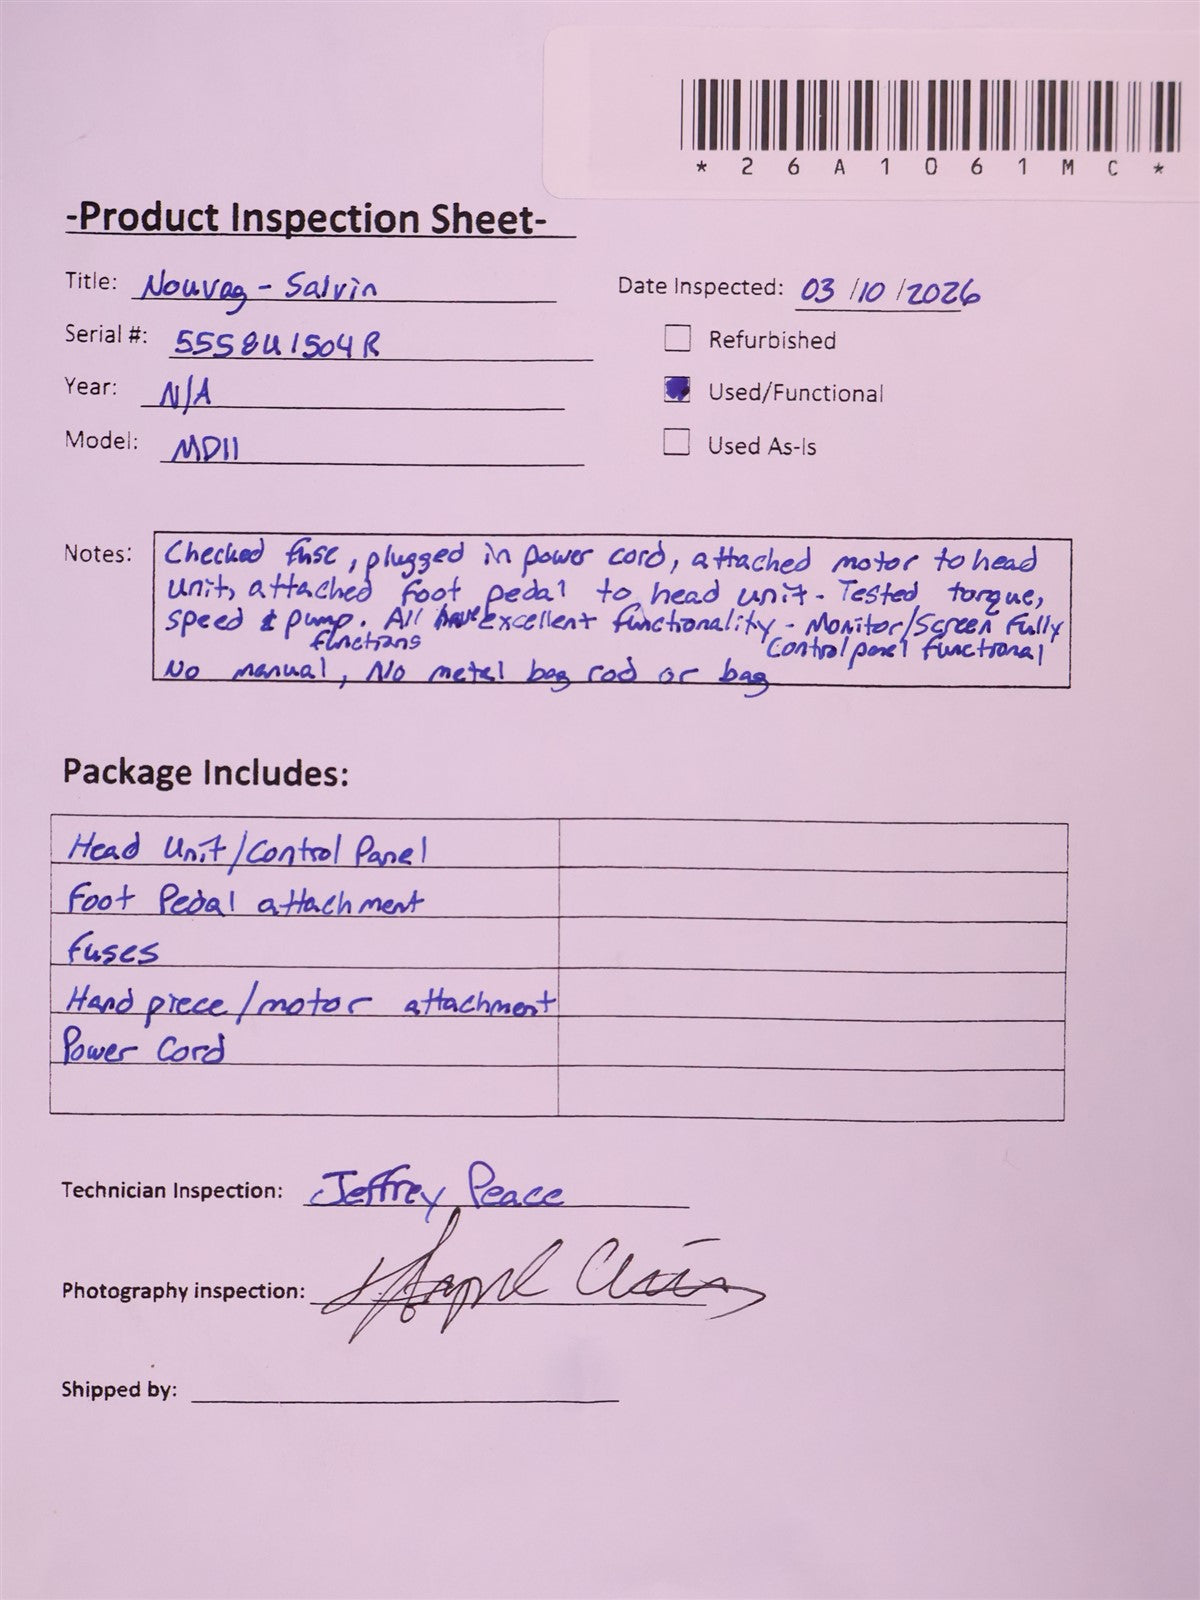 * 2 6 A 1 0 6 1 M C *
-Product Inspection Sheet-
Title: Nouvag - Salvin
Date Inspected: 03/10/2026
Serial #: 5558U1504R
Refurbished
Year: N/A
Used/Functional
Model: MD11
Used As-Is
Notes: Checked fuse, plugged in power cord, attached motor to head
unit, attached foot pedal to head unit - Tested torque,
speed & pump. All functions have excellent functionality - Monitor/Screen Fully
Control panel functional
No manual, No metal bag rod or bag
Package Includes:
Head Unit/Control Panel
Foot Pedal attachment
Fuses
Hand piece/motor attachment
Power Cord
Technician Inspection: Jeffrey Peace
Photography inspection:
Shipped by: